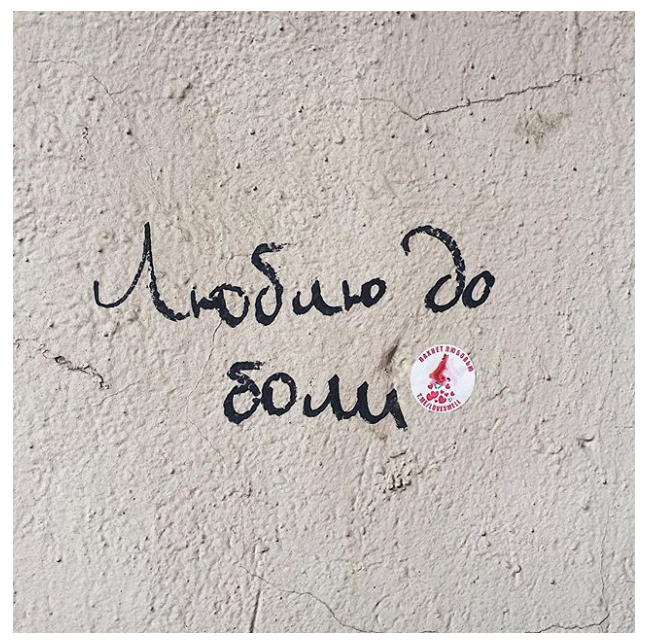 Люблю до
боли
ПАХНЕТ ЛЮБОВЬЮ
T.ME/LOVESMELL